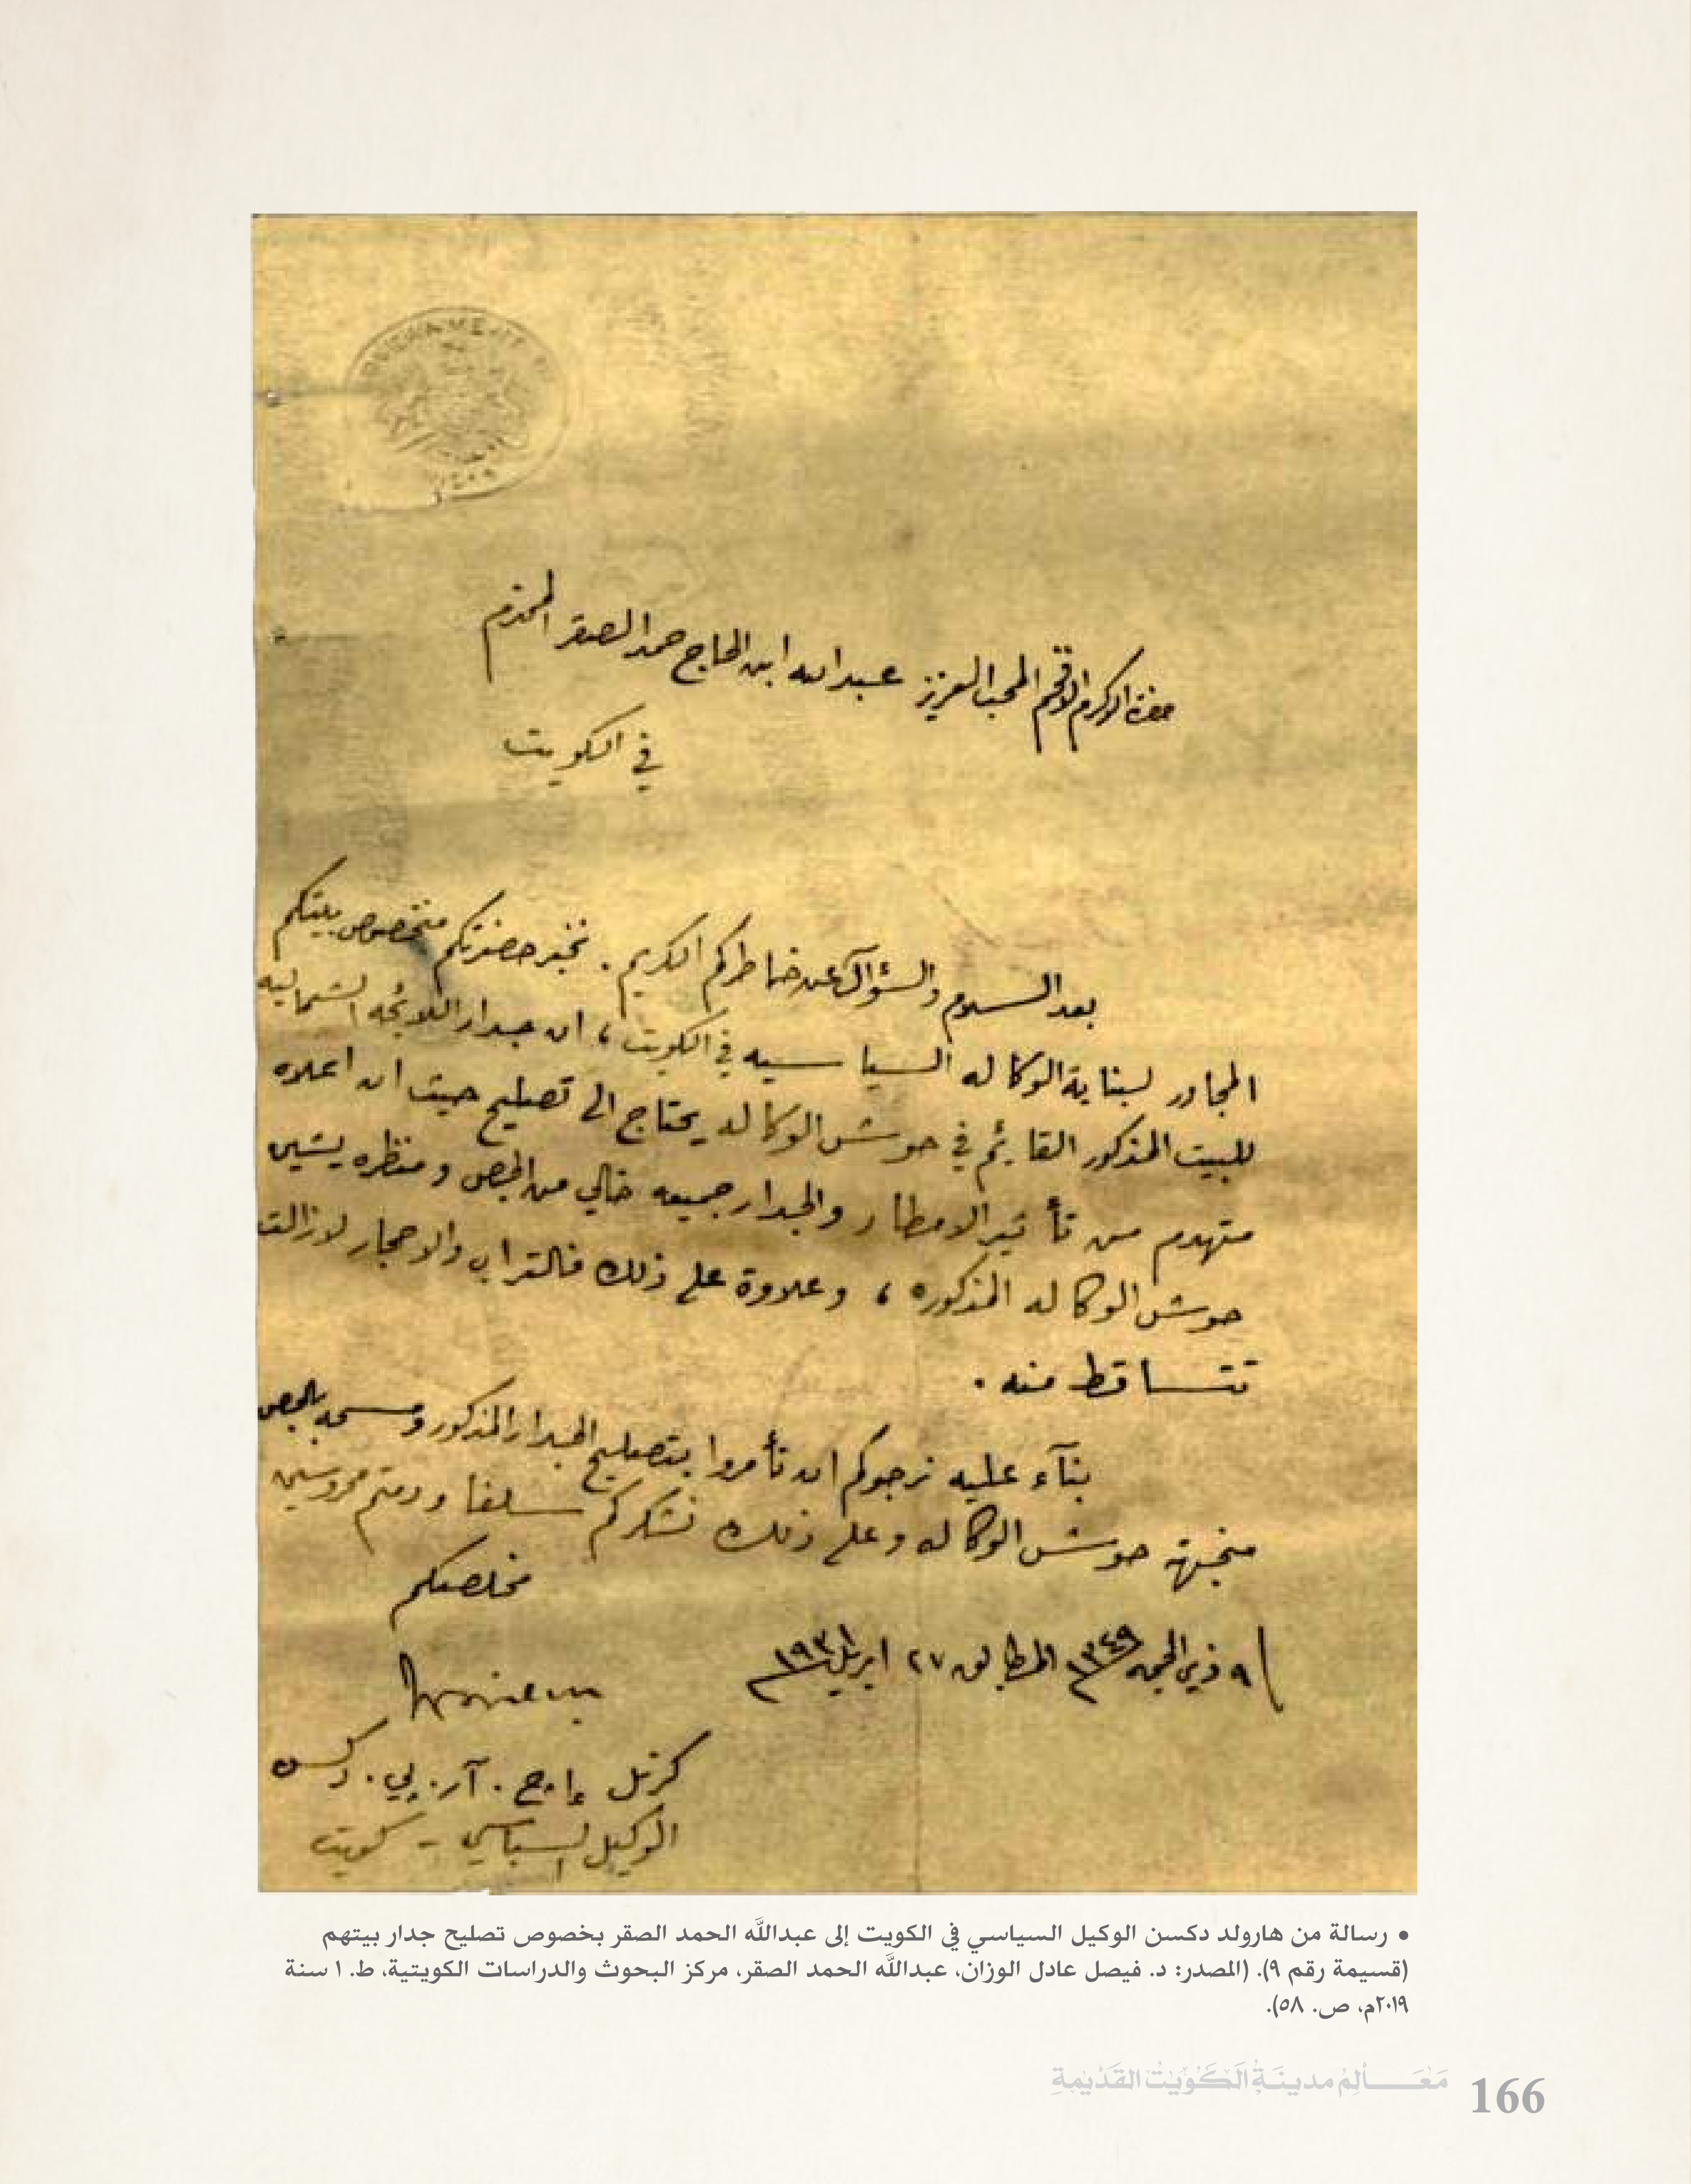 GOVERNMENT OF
حضرة الاكرم الافخم المحب العزيز عبدالله ابن الحاج حمد الصقر المحترم
في الكويت
بعد السلام والسؤال عن خاطركم الكريم. نخبر حضرتكم منخصوص بيتكم
المجاور لبناية الوكاله السياسيه في الكويت، ان جدار اللائجه الشماليه
للبيت المذكور القايئم في حوش الوكاله يحتاج الى تصليح حيث ان اعلاه
متهدم من تأثير الامطار والجدار جميعه خالي من الجص ومنظره يشين
حوش الوكاله المذكوره، وعلاوة على ذلك فالتراب والاحجار لازالت
تتساقط منه.
بنآء عليه نرجوكم ان تأمروا بتصليح الجدار المذكور ومسحه بالجص
منجهة حوش الوكاله وعلى ذلك نشكركم سلفا ودمتم محروسين
مخلصكم
٩ ذي الحجه ١٣٤٩ المطابق ٢٧ ابريل ١٩٣١
كرنل إ.ج. آر. پي. دكسن
الوكيل السياسي - كويت
• رسالة من هارولد دكسن الوكيل السياسي في الكويت إلى عبدالله الحمد الصقر بخصوص تصليح جدار بيتهم
(قسيمة رقم ٩). (المصدر: د. فيصل عادل الوزان، عبدالله الحمد الصقر، مركز البحوث والدراسات الكويتية، ط. ١ سنة
٢٠١٩م، ص. ٥٨).
مَعَالِمُ مدينَةِ الكُوَيْتِ القَدْيمةِ 166